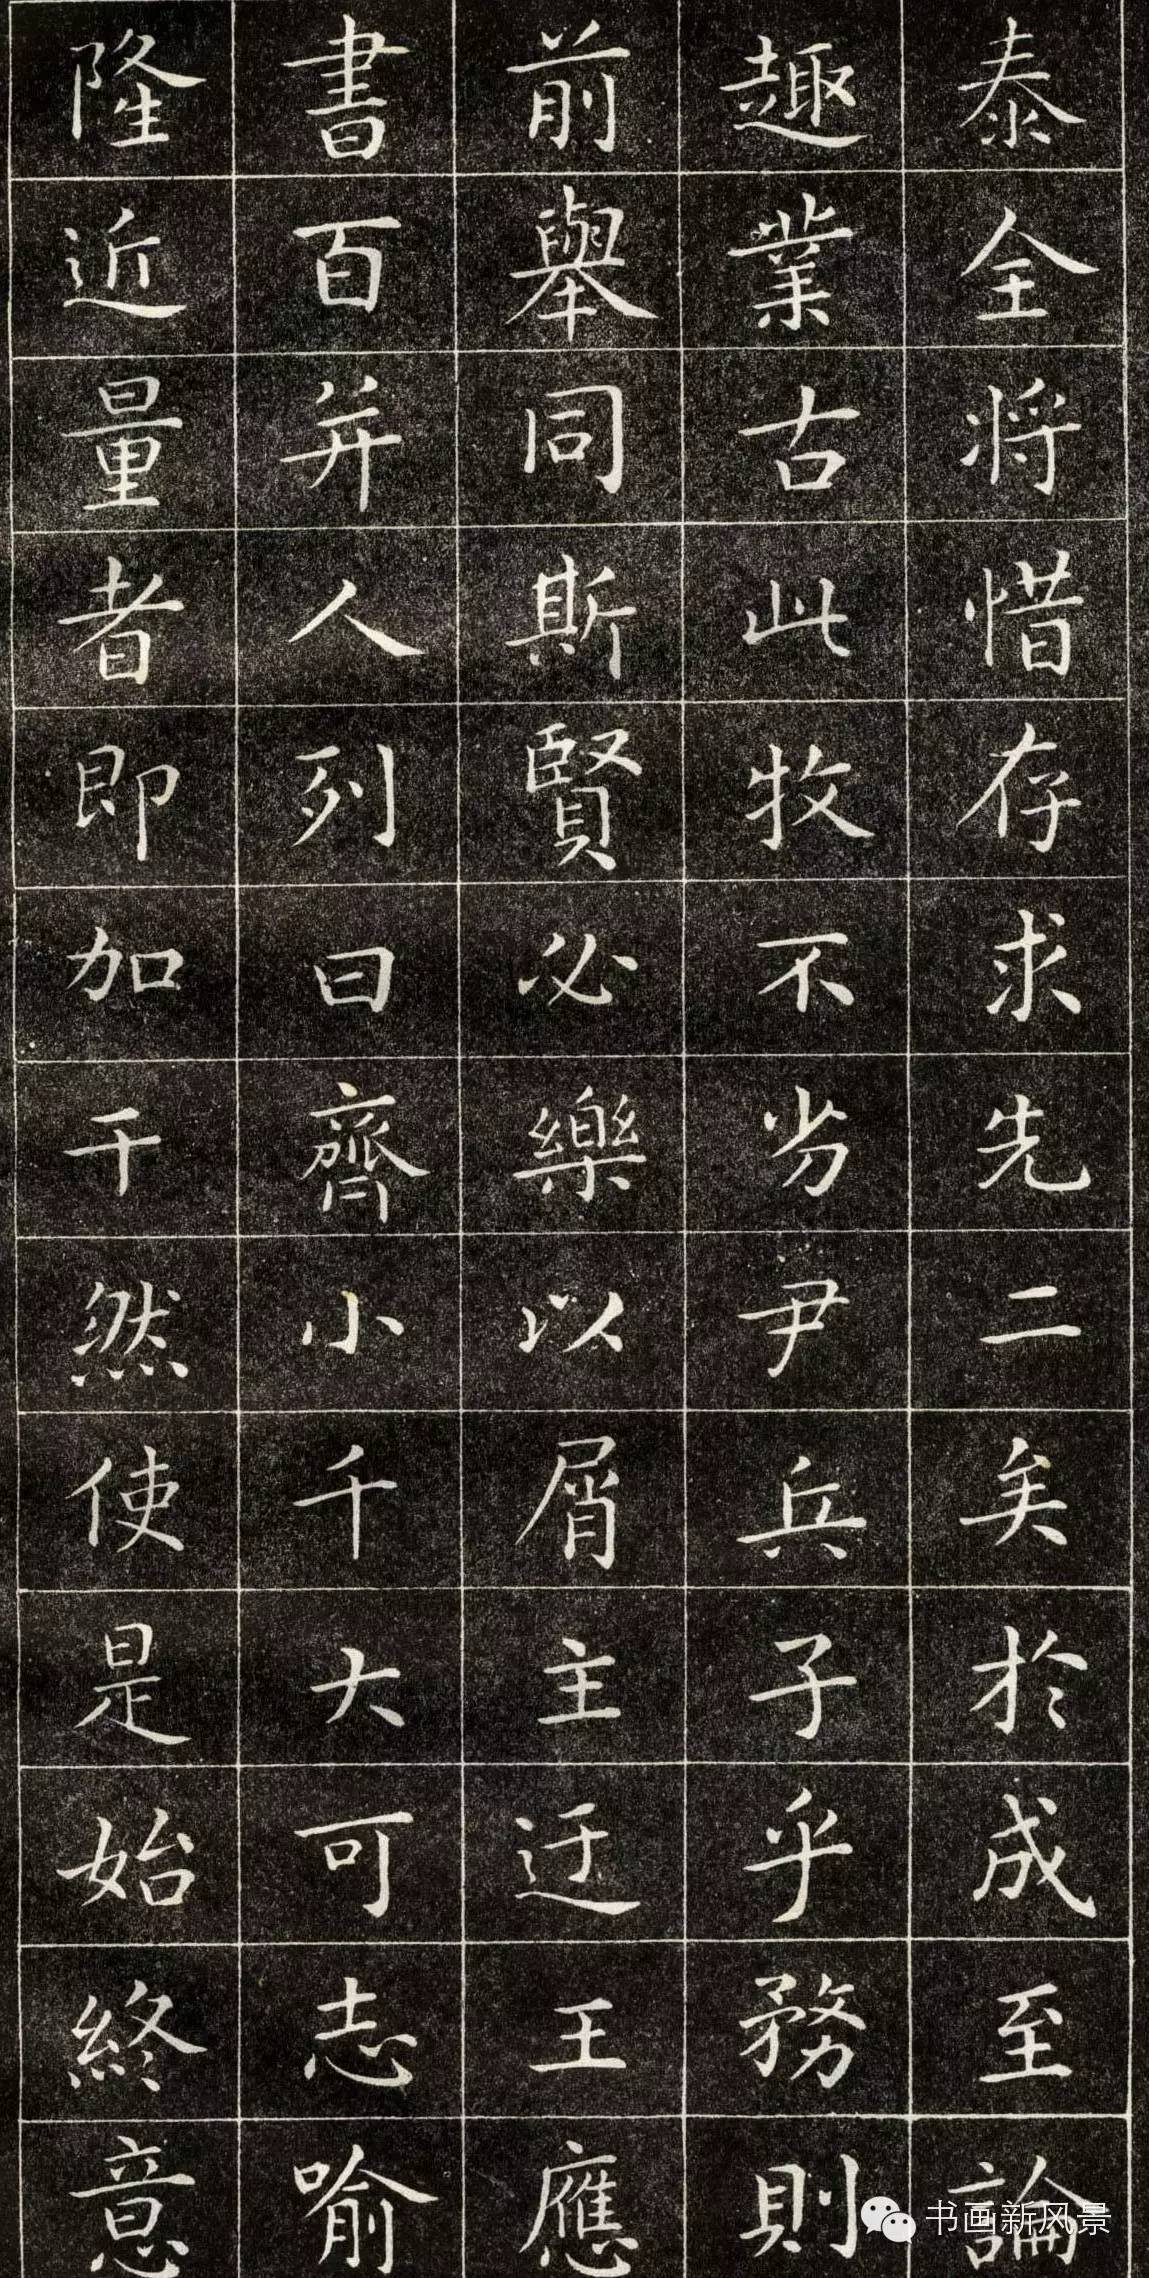 泰全将惜存求先二矣於成至論
趣業古此牧不劣尹兵子乎務則
前舉同斯賢必樂以屑主迂王應
書百并人列曰齊小千大可志喻
隆近量者即加干然使是始終意
书画新风景